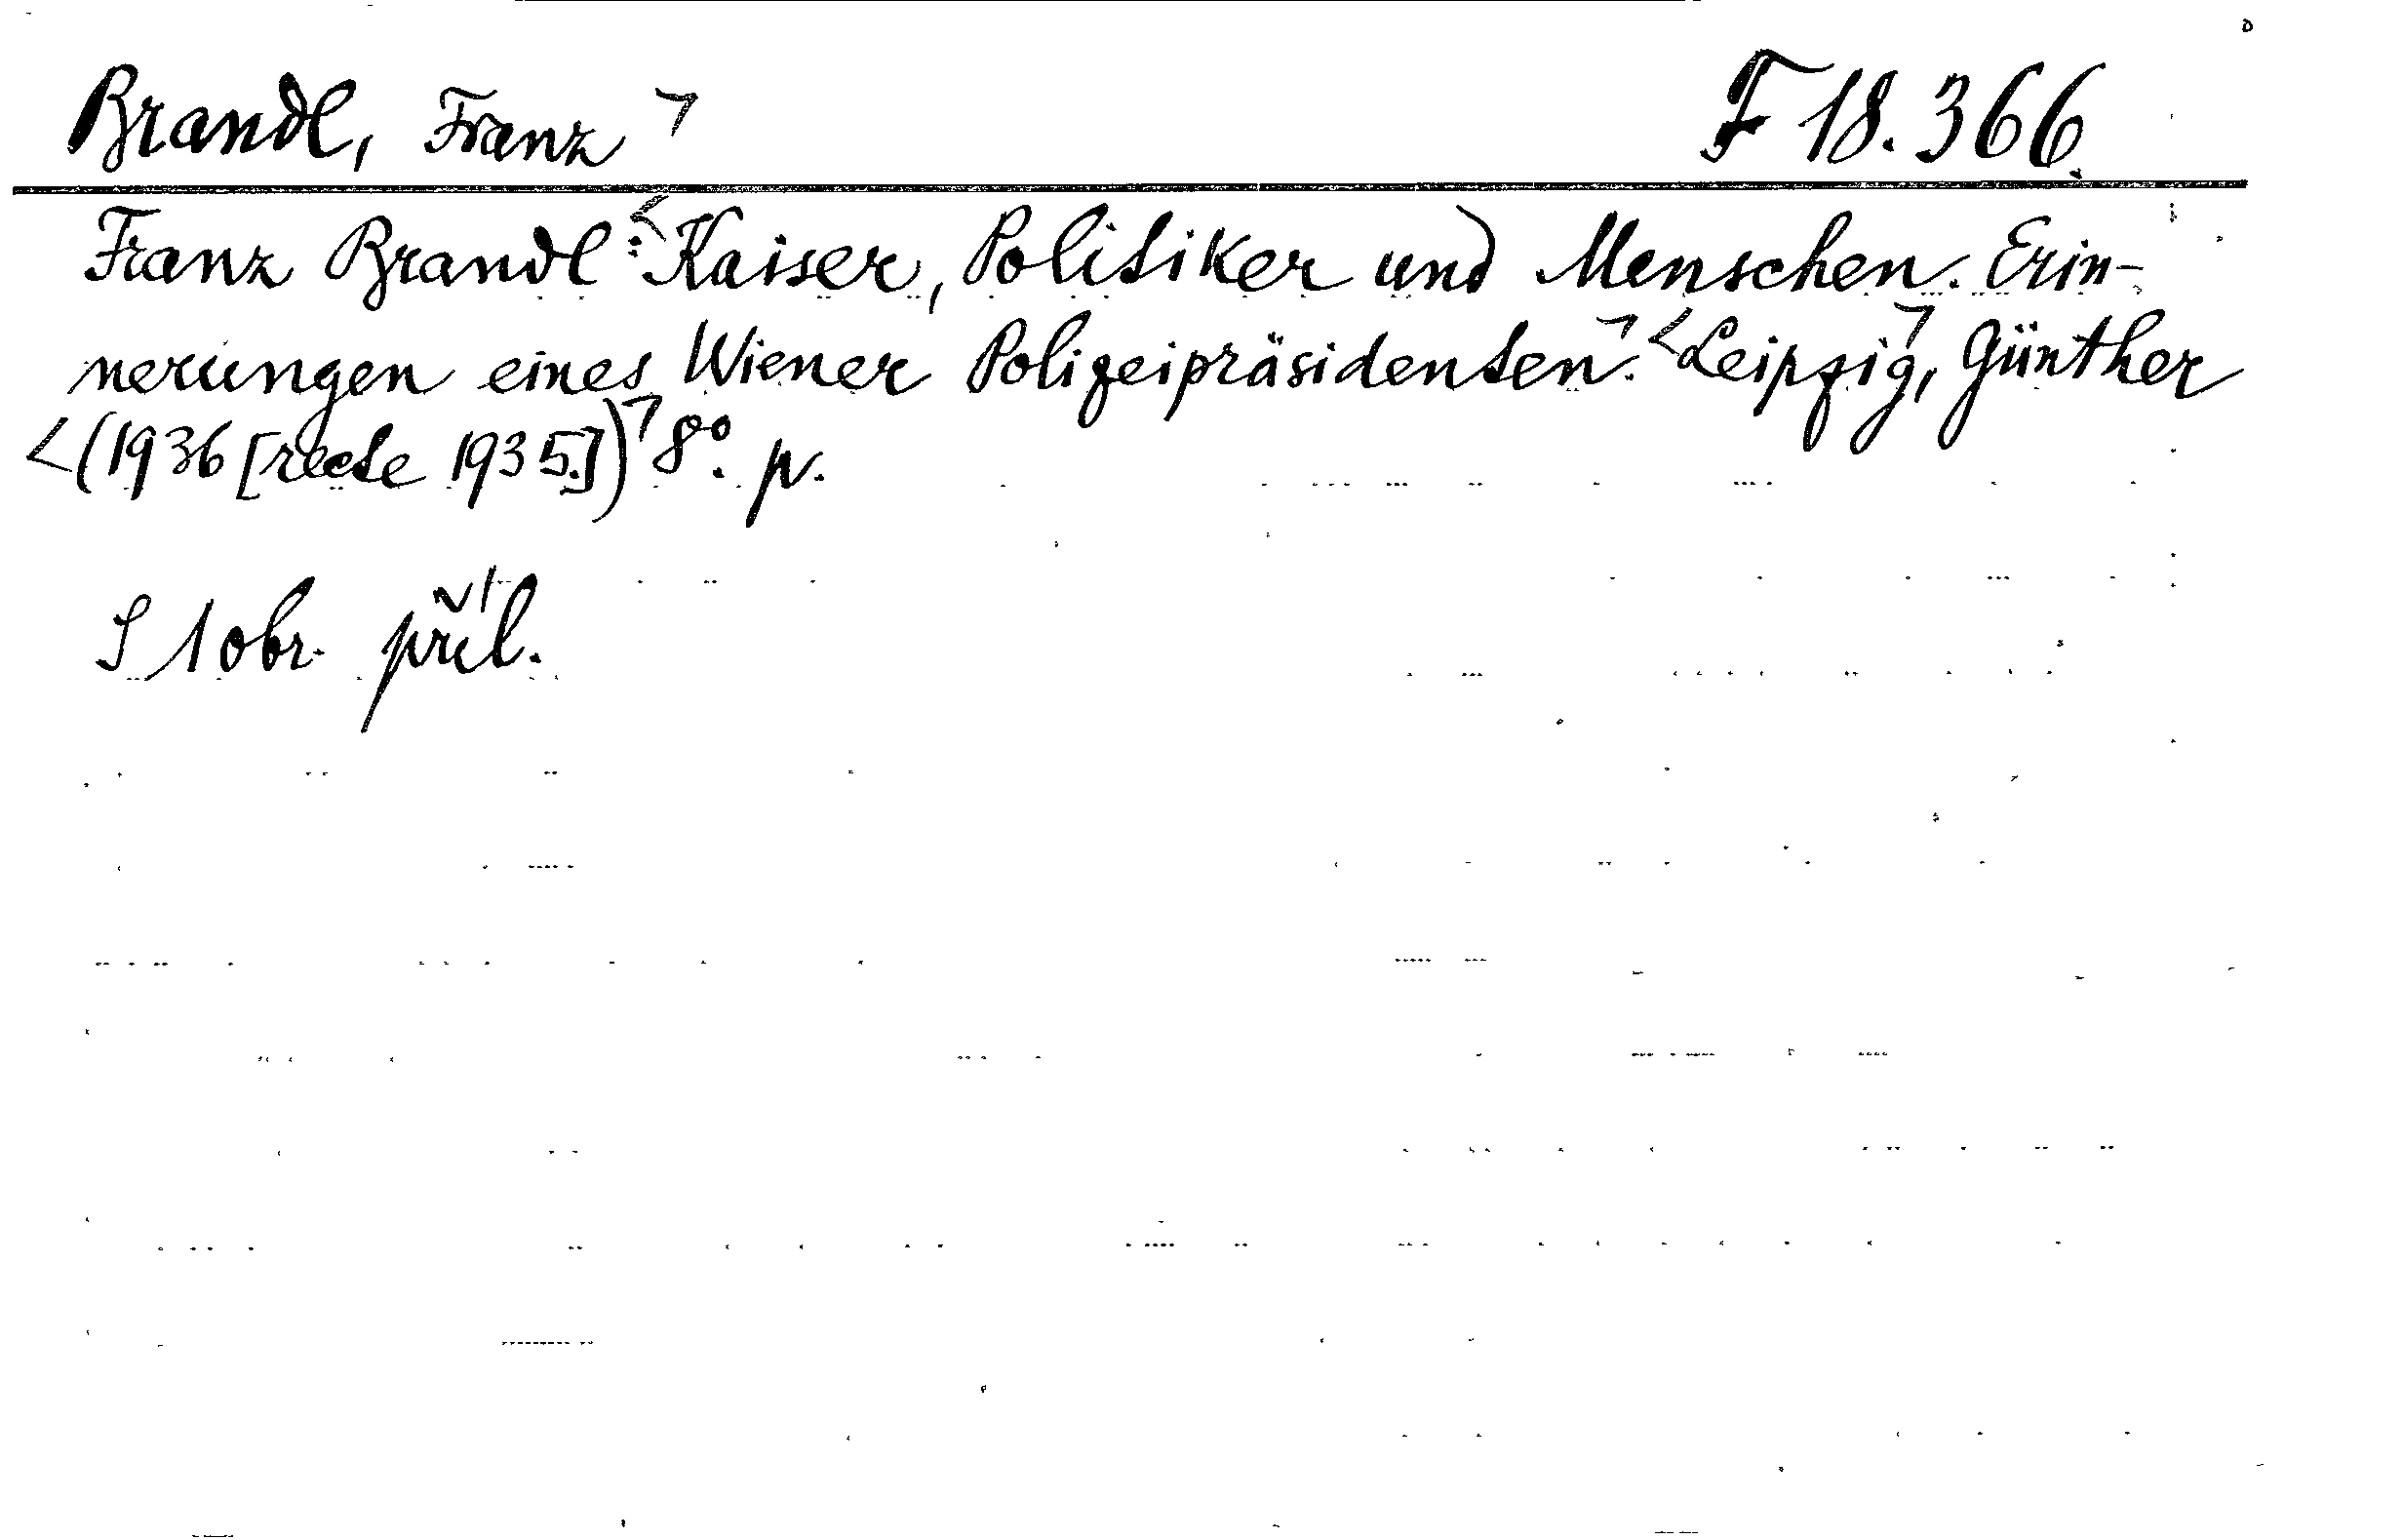 Brandl, Franz F 18.366.
Franz Brandl: Kaiser, Politiker und Menschen. Erin-
nerungen eines Wiener Polizeipräsidenten. Leipzig, Günther
(1936 [recte 1935.]) 8°. p.
S 1 obr. příl.